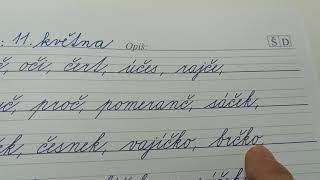 11. května Opiš: Š D
oči, čert, účes, rajče,
proč, pomeranč, sáček,
česnek, vajíčko, brčko